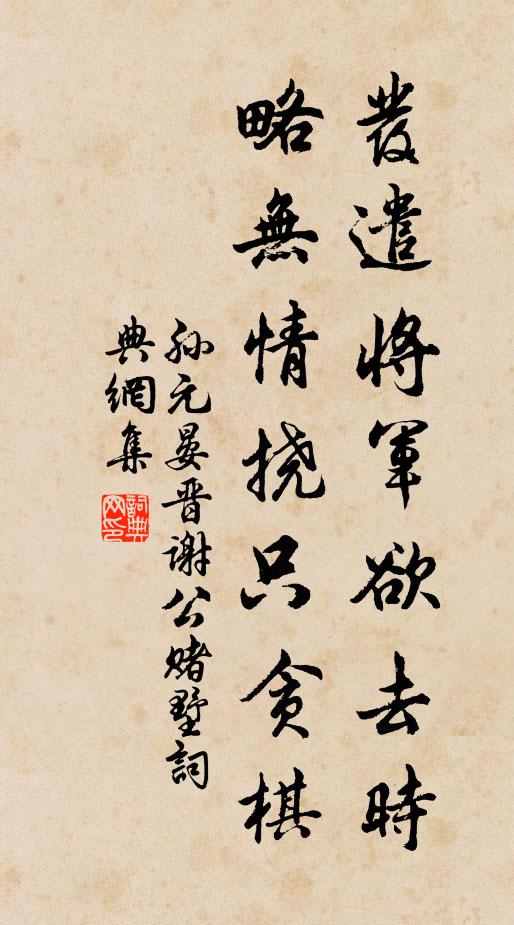 發遣將軍欲去時
略無情撓只貪棋
孫元晏晋謝公賭墅詞
典網集
詞典網印